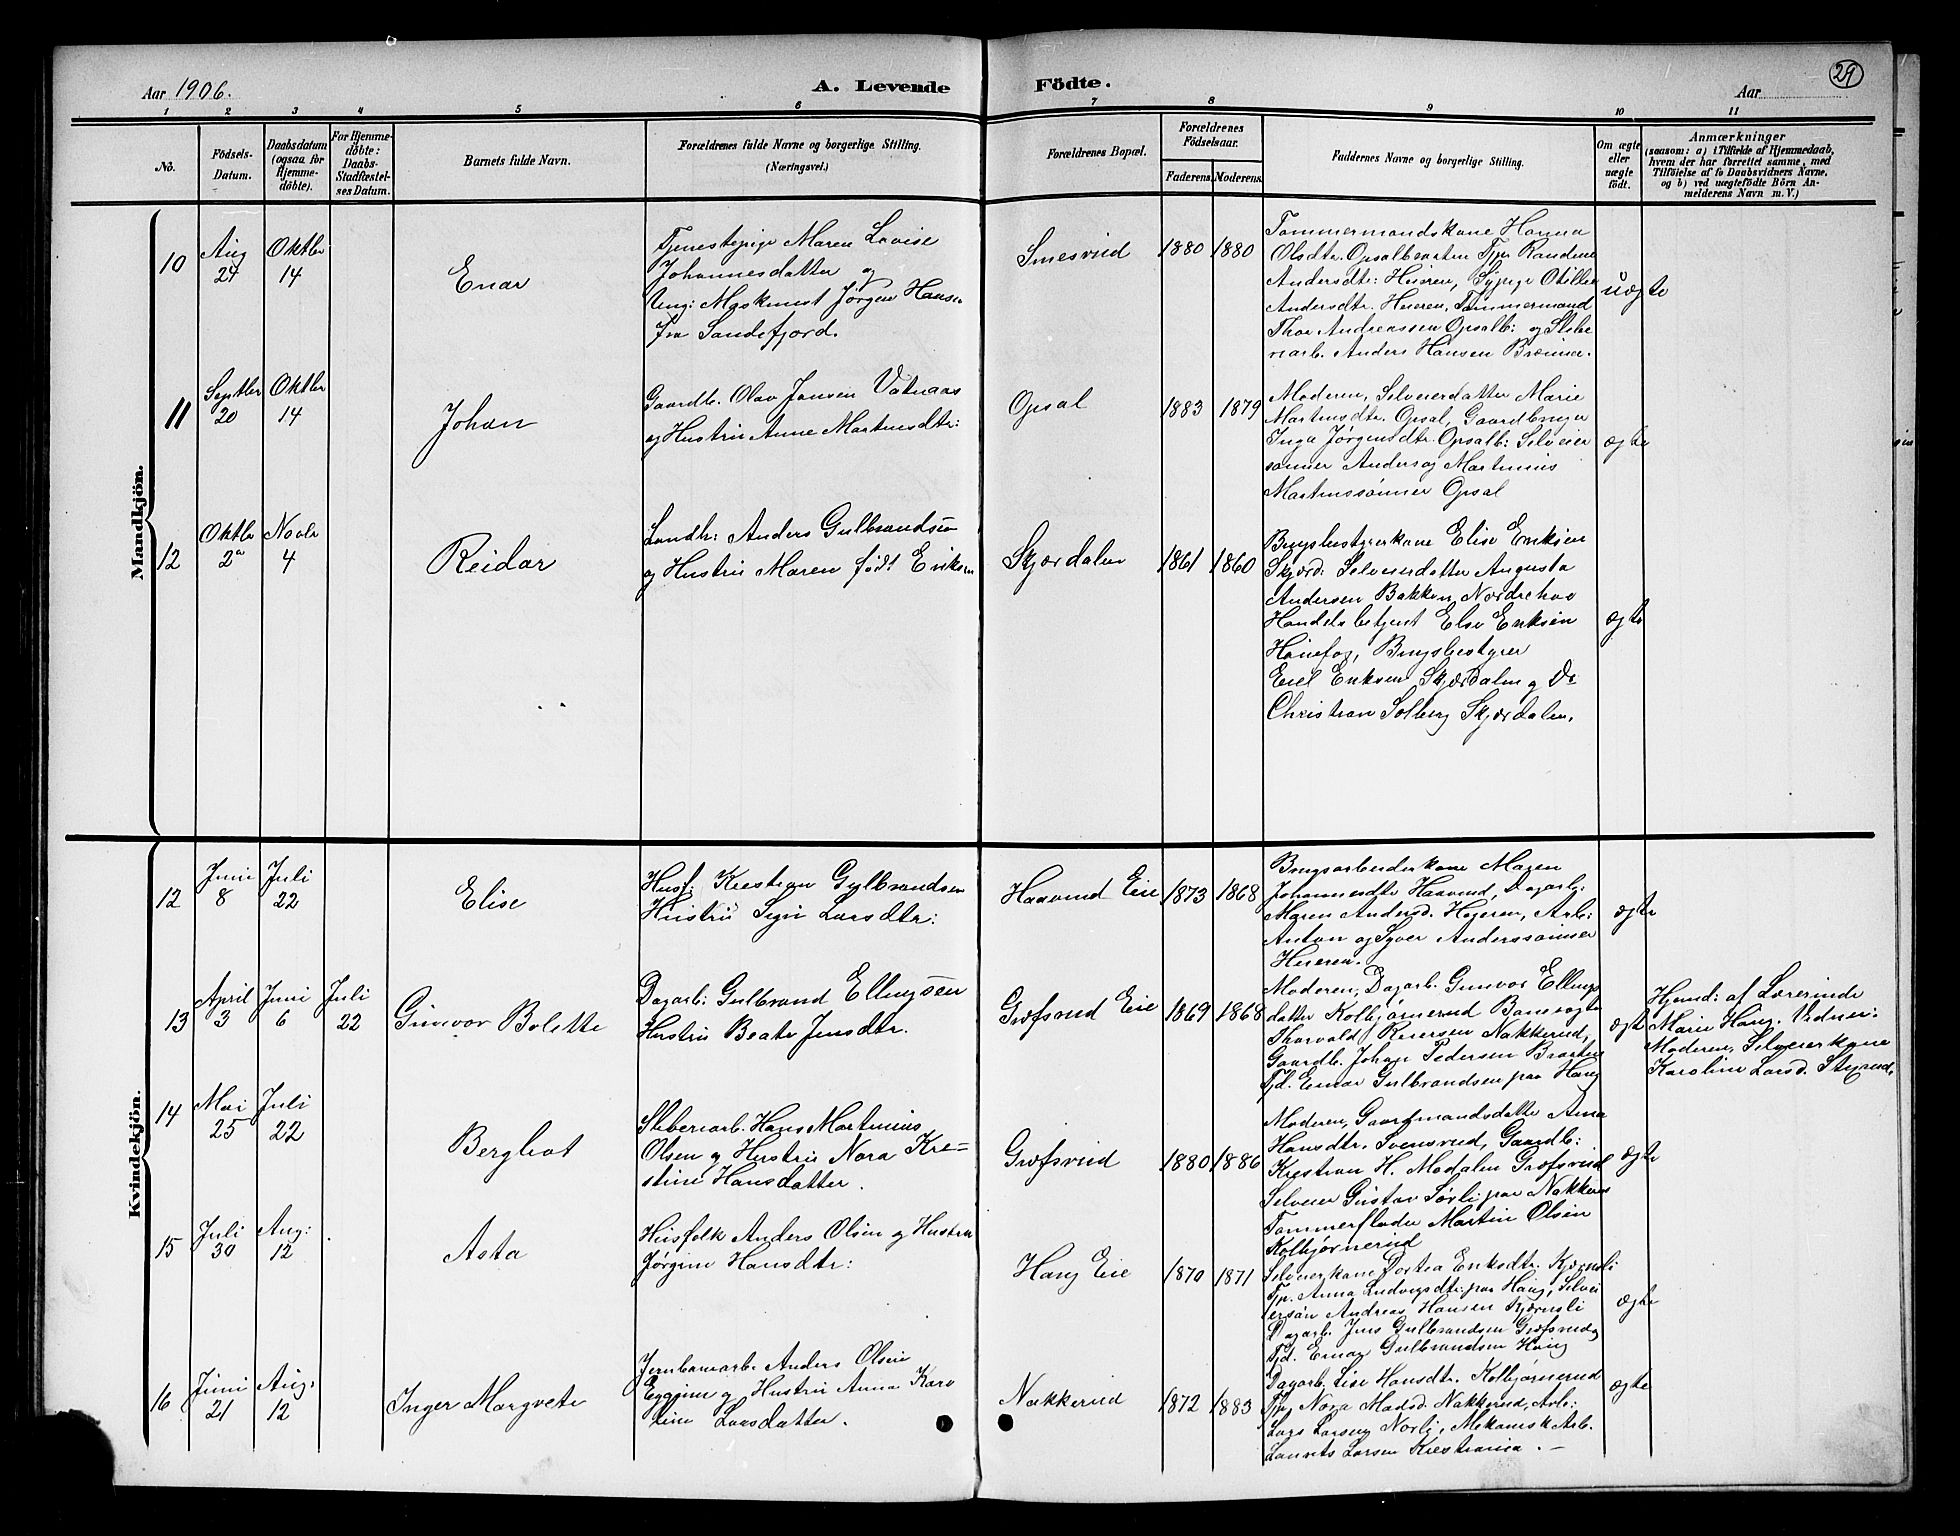 Aar 1906.
A. Levende Födte.
29
Aar
1 2 3 4 5 6 7 8 9 10 11
No.
Födsels-
Datum.
Daabsdatum
(ogsaa for
Hjemme-
döbte).
For Hjemme-
döbte:
Daabs-
Stadfæstel-
ses Datum.
Barnets fulde Navn.
Forældrenes fulde Navne og borgerlige Stilling.
(Næringsvei.)
Forældrenes Bopæl.
Forældrenes
Födselsaar.
Faderens. Moderens.
Faddernes Navne og borgerlige Stilling.
Om ægte
eller
uægte
födt.
Anmærkninger
(saasom: a) i Tilfælde af Hjemmedaab,
hvem der har forrettet samme, med
Tilföielse af to Daabsvidners Navne,
og b) ved uægtefödte Börn An-
melderens Navn m. V.)
Mandkjön.
10
Aug
24
Oktbr
14
Enar
Tjenestepige Maren Lovise
Johannesdatter og
Ung: Maskinist Jørgen Hansen
Fra Sandefjord.
Smesrud
1880 1880
Tømmermandskone Hanna
Olsdtr. Opsalbraaten Tjp. Randine
Andersdtr: Hieren, Sypige Otilie
Andersdtr. Hieren, Tømmermand
Thor Andreassen Opsalb: og Slibe
riarb. Anders Hansen
uægte
11
Septbr
20
Oktbr
14
Johan
Gaardb. Olav Jansen Vatnaas
og Hustru Anne Martinsdtr:
Opsal
1883 1879
Moderen, Selveierdatter Marie
Martinsdtr. Opsal, Gaardbruger
Inga Jørgensdtr. Opsalb: Selveier
sønner Anders og Martinius
Martinssønner Opsal
ægte
12
Oktbr
2
Novbr
4
Reidar
Landh: Anders Gulbrandsen
og Hustru Maren født Eriksen
Skjærdalen
1861 1860
Brugsbestyrerkone Elise Eriksen
Skjærd: Selveierdatter Augusta
Andersen Bakken, Norderhov
Handelsbetjent Else Eriksen
Hønefos, Brugsbestyrer
Emil Eriksen Skjærdalen og Do
Christian Solberg Skjærdalen.
ægte
Kvindekjön.
12
Juni
8
Juli
22
Elise
Husf: Kristian Gulbrandsen
Hustru Sigri Larsdtr:
Haavrud Eie
1873 1868
Brugsarbeiderkone Maren
Johannesdtr Haavrud, Dagarb:
Maren Andersd. Hieren, Arb:
Anton og Syver Anderssønner
Hieren.
ægte
13
April
3
Juni
6
Juli
22
Gunvor Bolette
Dagarb: Gulbrand Ellingsen
Hustru Beate Jensdtr.
Græfsrud Eie
1869 1868
Moderen, Dagarb. Gunvor Ellings
datter Kolbjørnrud Banevogter
Thorvald Reiersen Nakkerud,
Gaardb. Johan Pedersen Braaten
Tjd. Einar Gulbrandsen paa Haug
ægte
Hjemd: af Lærerinde
Marie Haug. Vidner:
Moderen, Selveierkone
Karoline Larsd.
14
Mai
25
Juli
22
Bergliot
Sliberiarb. Hans Martinius
Olsen og Hustru Nora Kre-
stine Hansdatter.
Græfsrud
1880 1886
Moderen, Gaardmandsdatter Anna
Hansdtr. Svensrud, Gaardb:
Kristian H. Modalen Græfsrud
Selveier Gustav Sørli paa Nakkerud
Tømmerfløder Martin Olsen
Kolbjørnrud
ægte
15
Juli
30
Aug:
12
Asta
Husfolk Anders Olsen og Hustru
Jørgine Hansdtr:
Haug Eie
1870 1871
Selveierkone Dortea Eriksdtr. Kjærnsli
Tjp. Anna Ludvigsdtr. paa Haug, Selvei
ersøn Andreas Hansen Kjærnsli
Dagarb. Jens Gulbrandsen Græfsrud og
Tjd. Einar Gulbrandsen Haug
ægte
16
Juni
21
Aug.
12
Inger Margrete
Jernbanearb. Anders Olsen
Eggen og Hustru Anna Karo
line Larsdatter.
Nakkerud
1872 1883
Dagarb. Lise Hansdtr. Kolbjørnrud
Tjp. Nora Madsd. Nakkerud, Arb:
Lars Larsen Norli, Mekanisk Arb.
Laurits Larsen Kristiania. –
ægte